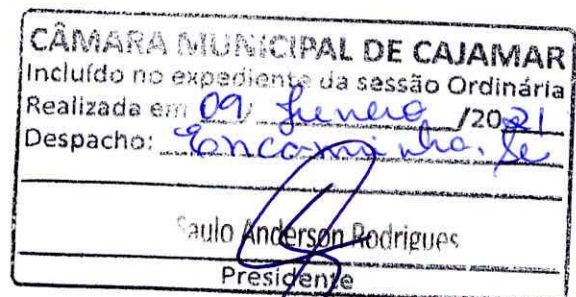 CÂMARA MUNICIPAL DE CAJAMAR
Incluído no expediente da sessão Ordinária
Realizada em 09/ /2021
Despacho: Encaminha-se
Saulo Anderson Rodrigues
Presidente